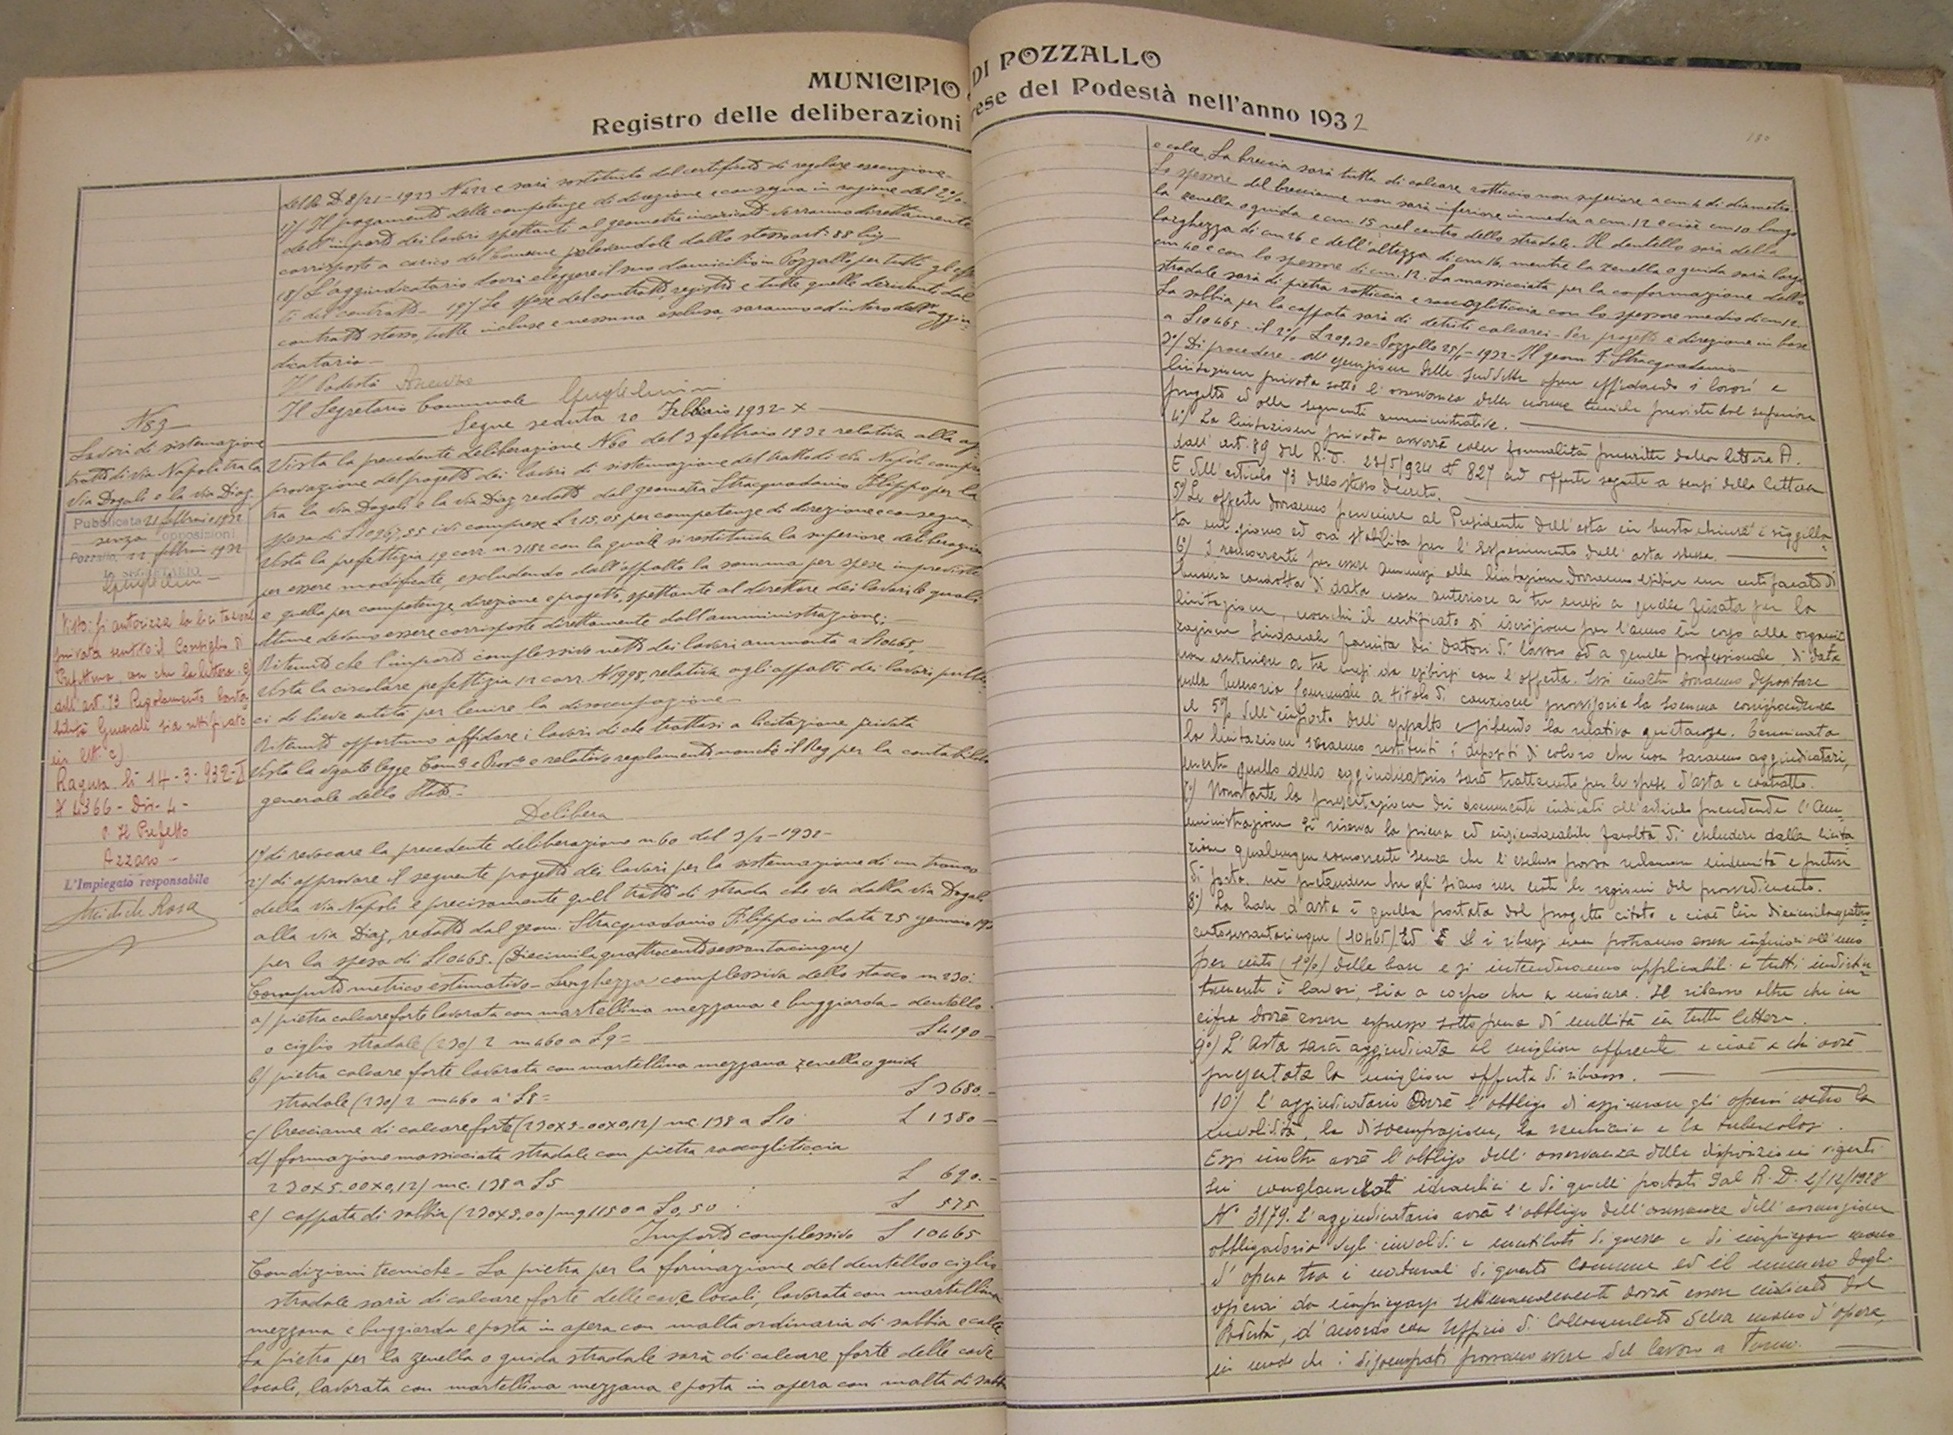 MUNICIPIO DI POZZALLO
Registro delle deliberazioni prese del Podestà nell'anno 1932
180
della D. 8/21-1923 N422 e sarà sostituito dal certificato di regolare esecuzione
Il pagamento delle competenze di direzione e consegna in ragione del 2%
dell'importo dei lavori spettanti al geometra incaricato verranno direttamente
corrisposte a carico del comune prelevandole dallo stesso art. 88
18) L'aggiudicatario dovrà eleggere il suo domicilio in Pozzallo per tutti gli effet
ti del contratto - 19) Le spese del contratto, registro e tutte quelle derivanti dal
contratto stesso, tutte incluse e nessuna esclusa, saranno ad intero dell'aggiu
dicatario
Il Podestà
Il Segretario Comunale Guglielmini
Segue seduta 20 Febbraio 1932-X
N 89
Lavori di sistemazione
tratto di via Napoli tra la
via Dogali e la via Diaz
Pubblicata 21 febbraio 1932
senza opposizioni
Pozzallo, 22 febbraio 1932
IL SEGRETARIO
Guglielmini
Visto: si autorizza la licitazione
privata sentito il Consiglio di
Prefettura, con che la lettera e)
all'art. 73 Regolamento Conta
bilità Generali sia rettificato
in lett. c)
Ragusa li 14-3-932-X
N 4366 - Div. 4 -
p. Il Prefetto
Azzaro
L'Impiegato responsabile
Vista la precedente deliberazione N60 del 3 febbraio 1932 relativa alla ap
provazione del progetto dei lavori di sistemazione del tratto di via Napoli compre
tra la via Dogali e la via Diaz redatto dal geometra Stracquadanio Filippo per la
spesa di £10967,55 ivi comprese £215,05 per competenze di direzione e consegna
Vista la prefettizia 19 corr. n. 3182 con la quale si restituisce la superiore deliberazione
per essere modificata, escludendo dall'appalto la somma per spese impreviste
e quella per competenze, direzione e progetto, spettante al direttore dei lavori, le quali
ultime devono essere corrisposte direttamente dall'amministrazione;
Ritenuto che l'importo complessivo netto dei lavori ammonta a £10465,
Vista la circolare prefettizia 12 corr. N1995, relativa agli appalti dei lavori pubbli
ci di lieve entità per lenire la disoccupazione
Ritenuto opportuno affidare i lavori di che trattasi a licitazione privata
Vista la vigente legge Com.le e Prov.le e relativo regolamento nonchè il Reg. per la contabilità
generale dello Stato.
Delibera
1°) di revocare la precedente deliberazione n. 60 del 3/2-1932-
2°) di approvare il seguente progetto dei lavori per la sistemazione di un tronco
della via Napoli e precisamente quel tratto di strada che va dalla via Dogali
alla via Diaz, redatto dal geom. Stracquadanio Filippo in data 25 gennaio 1932
per la spesa di £10465. (Diecimilaquattrocentosessantacinque)
Computo metrico estimativo - Lunghezza complessiva dello stacco m 230:
a) pietra calcare forte lavorata con martellina mezzana e buggiarda - dentello
o ciglio stradale (230) 2 m 460 a £9= £4190
b) pietra calcare forte lavorata con martellina mezzana zenella o guida
stradale (230) 2 m 460 a £8= £3680.
c) brecciame di calcare forte (230x5.00x0,12) mc. 138 a £10 £1380
d) formazione massicciata stradale con pietra raccogliticcia
230x5.00x0,12) mc. 138 a £5 £690.
e) cappata di sabbia (230x5,00) mq 1150 a £0,50 £575
Importo complessivo £10465
Condizioni tecniche - La pietra per la formazione del dentello o ciglio
stradale sarà di calcare forte delle cave locali, lavorata con martellina
mezzana e buggiarda e posta in opera con malta ordinaria di sabbia e calce
La pietra per la zenella o guida stradale sarà di calcare forte delle cave
locali, lavorata con martellina mezzana e posta in opera con malta di sabbia
e calce. La breccia sarà tutta di calcare rotticcio non superiore a cm 4 di diametro.
Lo spessore del brecciame non sarà inferiore in media a cm. 12 e cioè cm 10 lungo
la zenella o guida e cm. 15 nel centro dello stradale. Il dentello sarà della
larghezza di cm 26 e dell'altezza di cm 16, mentre la zenella o guida sarà larga
cm 40 e con lo spessore di cm. 12. La massicciata per la conformazione dello
stradale sarà di pietra rotticcia e raccogliticcia con lo spessore medio di cm 12
La sabbia per la cappata sarà di detriti calcarei - Per progetto e direzione in base
a £10465 - il 2% £209.30 - Pozzallo 25/1-1932 - Il geom. F. Stracquadanio
3°) Di procedere all'esecuzione delle suddette opere affidando i lavori a
licitazione privata sotto l'osservanza delle norme tecniche previste dal superiore
progetto ed alle seguenti amministrative.
4°) La licitazione privata avverrà colle formalità prescritte dalla lettera A.
dall'art. 89 del R.D. 23/5/924 N 827 ad offerte segrete a sensi della lettera
E dell'articolo 73 dello stesso decreto.
5°) Le offerte dovranno pervenire al Presidente dell'asta in busta chiusa e siggilla
ta nel giorno ed ora stabilita per l'esperimento dell'asta stessa.
6°) I concorrenti per essere ammessi alla licitazione dovranno esibire un certificato di
buona condotta di data non anteriore a tre mesi a quella fissata per la
licitazione, nonchè il certificato di iscrizione per l'anno in corso alla organiz
zazione sindacale fascista dei datori di lavoro od a quella professionale, di data
non anteriore a tre mesi da esibirsi con l'offerta. Essi inoltre dovranno depositare
nella Tesoreria Comunale a titolo di cauzione provvisoria la somma corrispondente
al 5% dell'importo dell'appalto esibendo la relativa quietanza. Terminata
la licitazione saranno restituiti i depositi di coloro che non saranno aggiudicatari,
mentre quello dello aggiudicatario sarà trattenuto per le spese d'asta e contratto.
7°) Nonostante la presentazione dei documenti indicati all'articolo precedente l'Am
ministrazione si riserva la piena ed insindacabile facoltà di escludere dalla licita
zione qualunque concorrente senza che l'escluso possa reclamare indennità e pretese
di sorta, nè pretendere che gli siano rese note le ragioni del provvedimento.
8°) La base d'asta è quella portata dal progetto citato e cioè lire Diecimilaquattro
centosessantacinque (10465) ed i ribassi non potranno essere inferiori all'uno
per cento (1%) della base e si intenderanno applicabili a tutti indistin
tamente i lavori, sia a corpo che a misura. Il ribasso oltre che in
cifra dovrà essere espresso sotto pena di nullità in tutte lettere.
9°) L'Asta sarà aggiudicata al miglior offerente e cioè a chi avrà
presentata la migliore offerta di ribasso.
10°) L'aggiudicatario avrà l'obbligo di assicurare gli operai contro la
invalidità, la disoccupazione, la vecchiaia e la tubercolosi.
Essi inoltre avrà l'obbligo dell'osservanza delle disposizioni vigenti
sui conglomerati idraulici e di quelle portate dal R.D. 4/12/1928
N° 3179. L'aggiudicatario avrà l'obbligo dell'osservanza dell'assunzione
obbligatoria degli invalidi e mutilati di guerra e di impiegare mano
d'opera tra i naturali di questo Comune ed il numero degli
operai da impiegarsi settimanalmente dovrà essere indicato dal
Podestà, d'accordo con l'ufficio di Collocamento della mano d'opera,
in modo che i disoccupati possano avere del lavoro a turno.